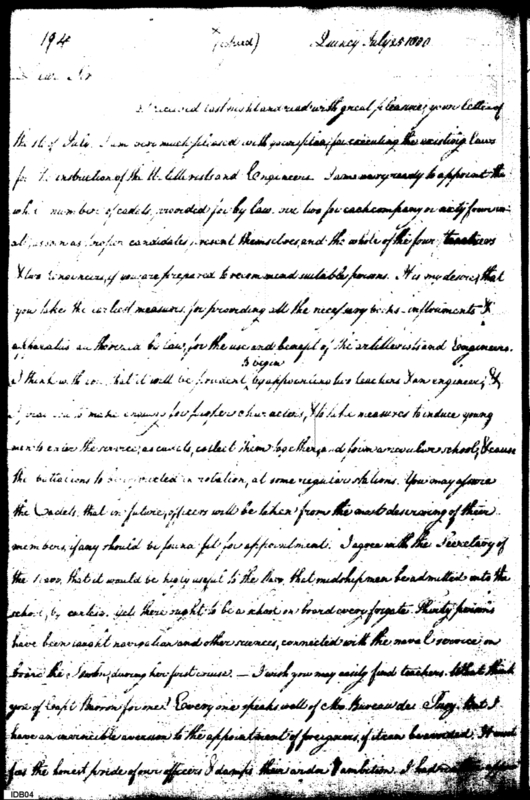 194 (copied) Quincy July 25 1800
Dear Sir
I received last night and read with great pleasure, your letter of
the 16 of July. I am very much pleased with your plan for executing the existing laws
for the instruction of the Artillerists and Engineers. I am very ready to appoint the
whole number of cadets, provided for by law, viz two for each company or sixty four in
all, as soon as proper candidates present themselves, and the whole of the four teachers
& two Engineers, if you are prepared to recommend suitable persons. It is my desire, that
you take the earliest measures, for providing all the necessary books, instruments &
apparatus authorized by law, for the use and benefit of the artillerists and Engineers.
to begin
I think with you, that it will be prudent, by appointing two teachers & an engineer, &
I pray you to make enquiries for proper characters, & to take measures to induce young
men to enter the service, as cadets, collect them together, and form a regular school, & cause
the battalions to be instructed in rotation, at some regular stations. You may assure
the Cadets, that in future, officers will be taken from the most deserving of their
members, if any should be found fit for appointment. I agree with the Secretary of
the Navy, that it would be highly useful to the Navy, that midshipman be admitted into the
school, by courtesy. Yet there ought to be a school on board every frigate. Thirty persons
have been taught navigation and other sciences, connected with the naval service, on
board the during her first cruise. — I wish you may easily find teachers. What think
you of Capt Barron for one? Every one speaks well of Mr Bureau de Pusy. But I
have an invincible aversion to the appointment of foreigners, if it can be avoided. It mortifies
the honest pride of our officers & damps their ardor & ambition. I had